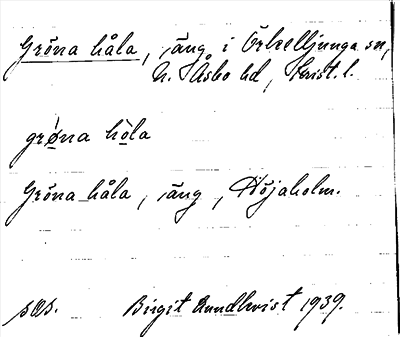 Gröna håla, äng i Örkelljunga sn,
N. Åsbo hd, Krist. l.
grøna hòla
Gröna håla, äng, Höjaholm.
sas. Birgit Lundkvist 1939.